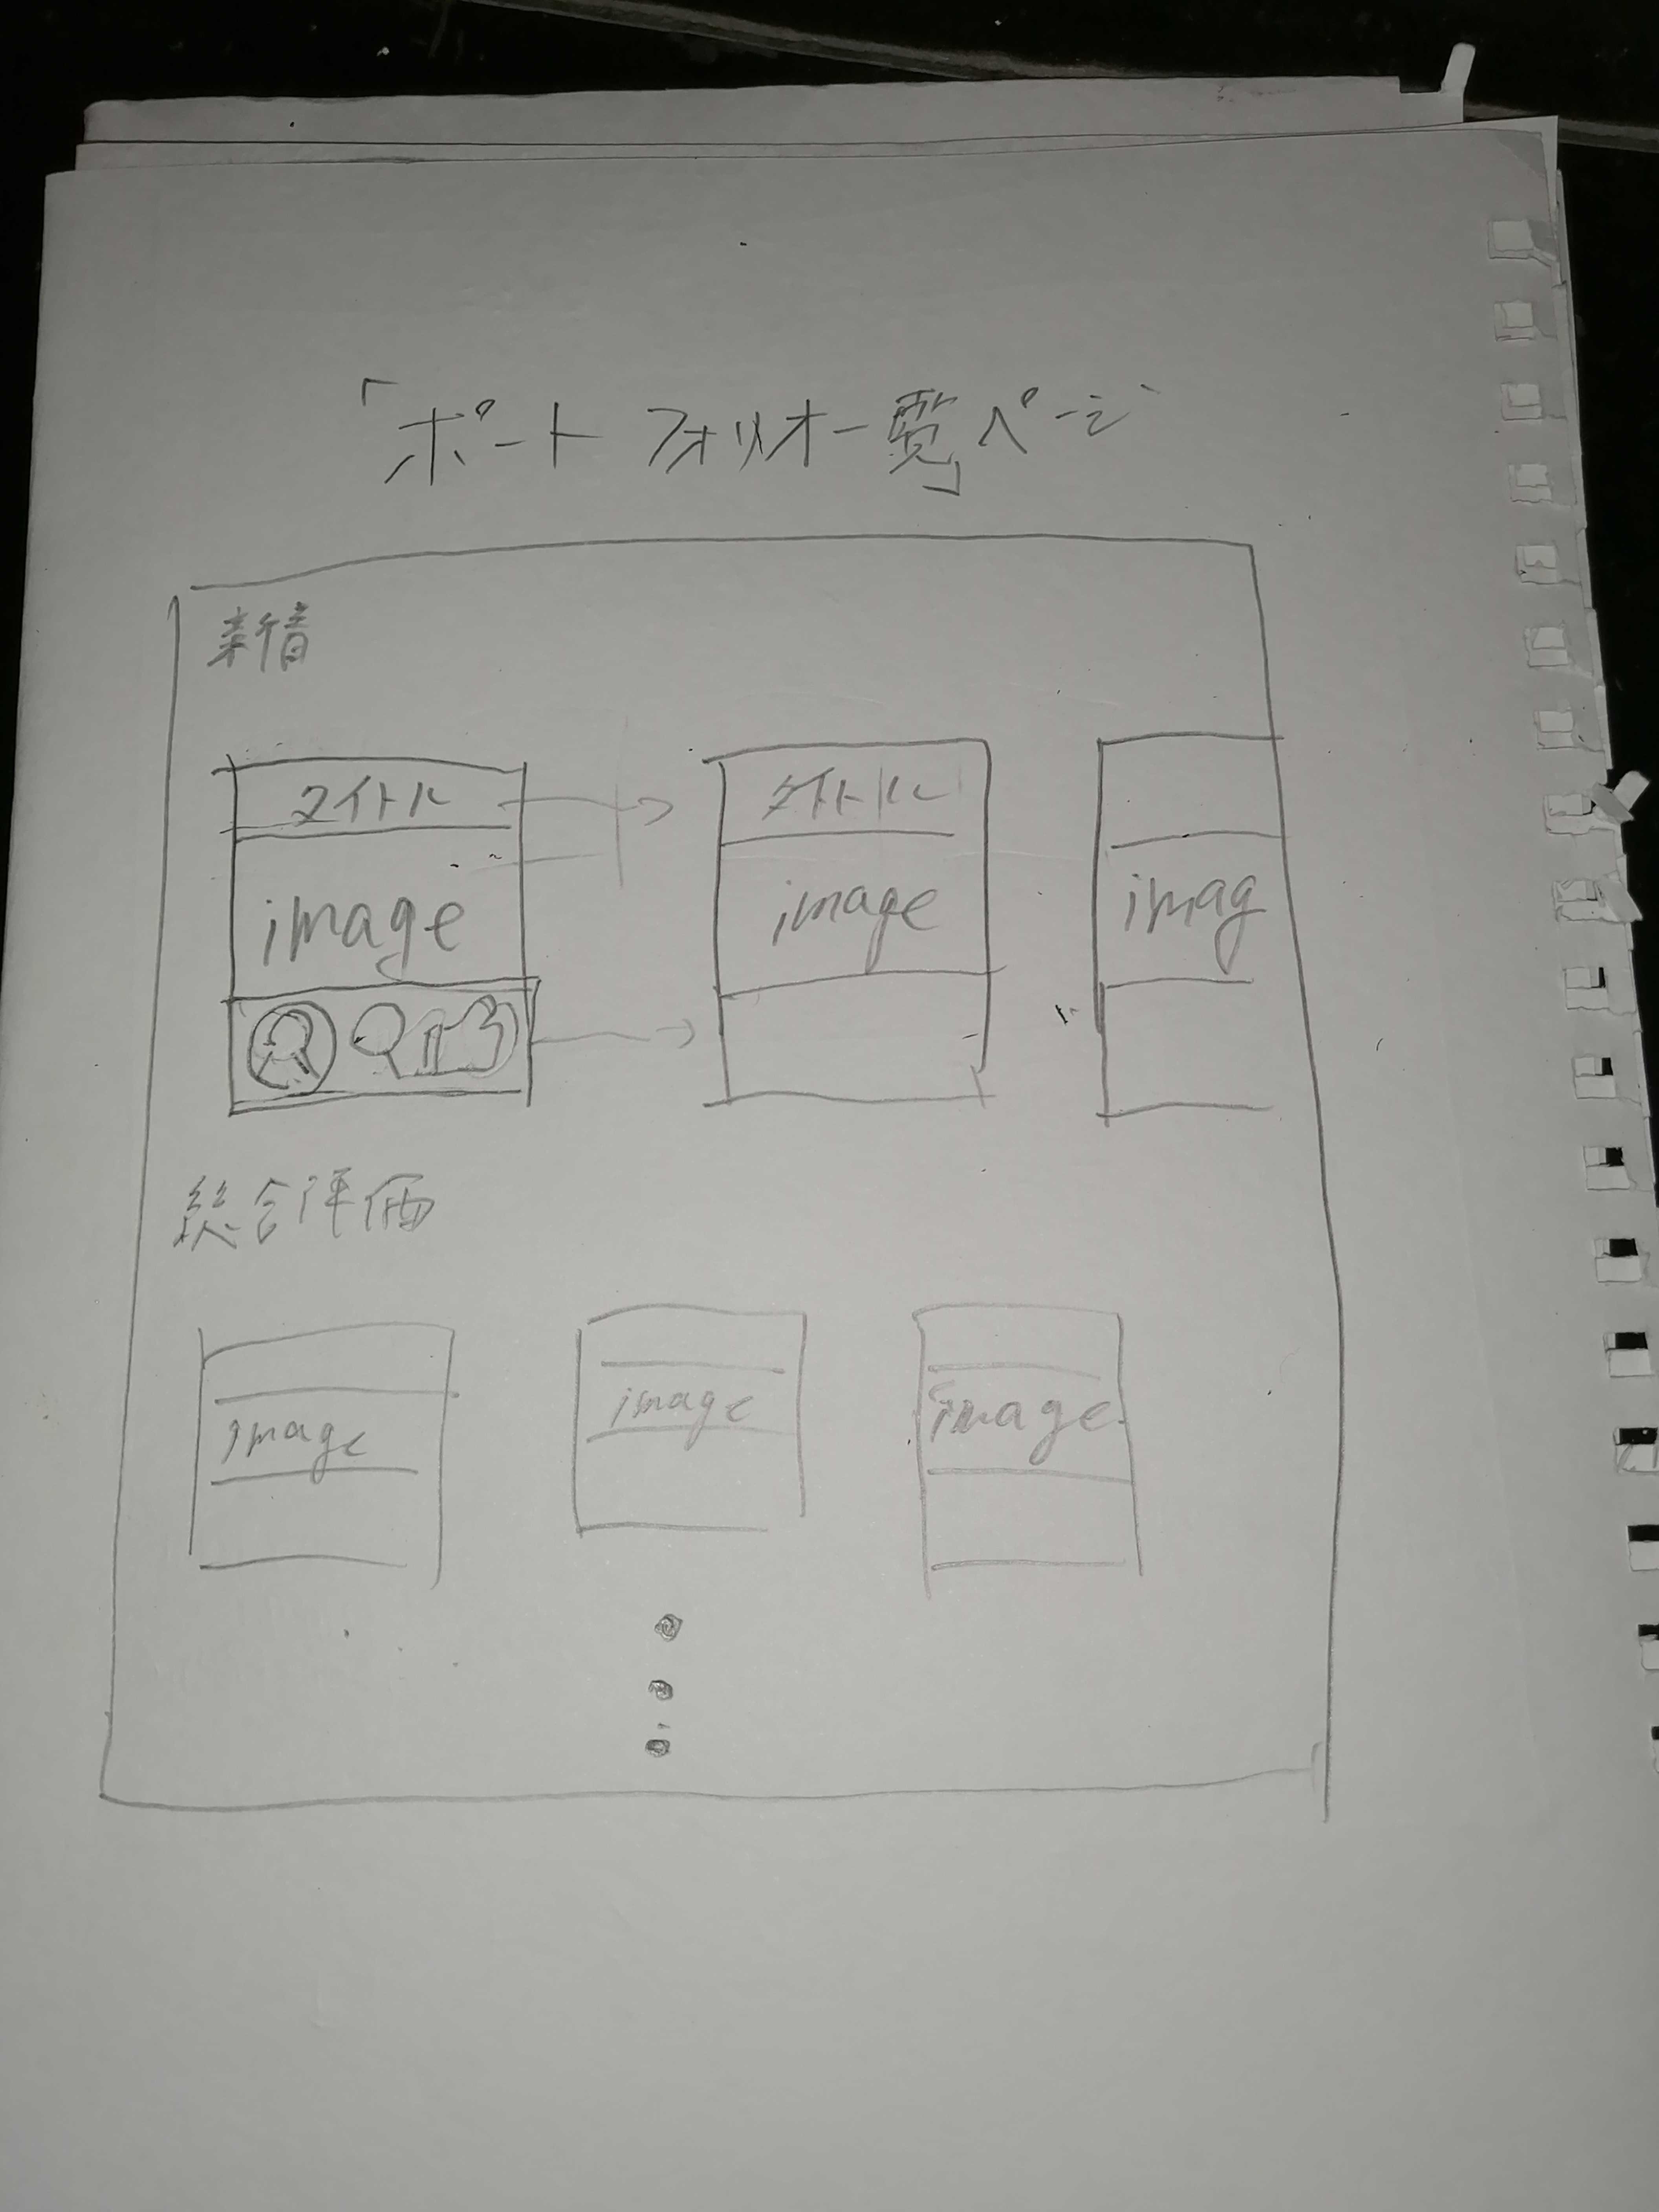 「ポートフォリオ一覧ページ」
新着
タイトル タイトル
image image imag
総合評価
image image image